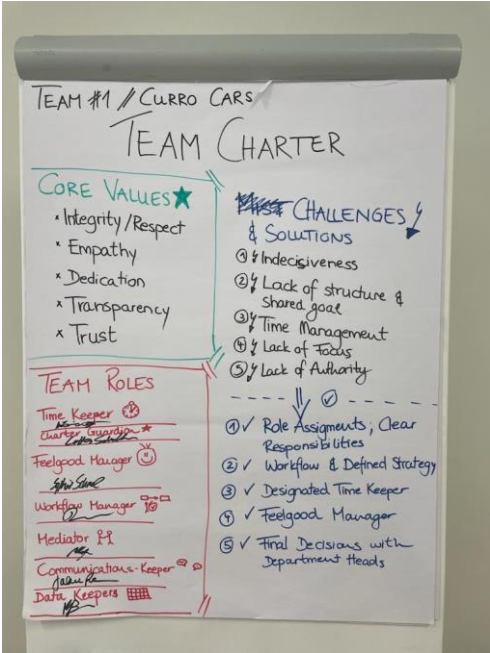 TEAM #1 // CURRO CARS
TEAM CHARTER
CORE VALUES
x Integrity/Respect
x Empathy
x Dedication
x Transparency
x Trust
TEAM ROLES
Time Keeper
Charter Guardian
Feelgood Manager
Workflow Manager
Mediator
Communications-Keeper
Data Keepers
CHALLENGES
& SOLUTIONS
① Indecisiveness
② Lack of structure &
shared goal
③ Time Management
④ Lack of Focus
⑤ Lack of Authority
① ✓ Role Assigments; Clear
Responsibilities
② ✓ Workflow & Defined Strategy
③ ✓ Designated Time Keeper
④ ✓ Feelgood Manager
⑤ ✓ Final Decisions with
Department Heads